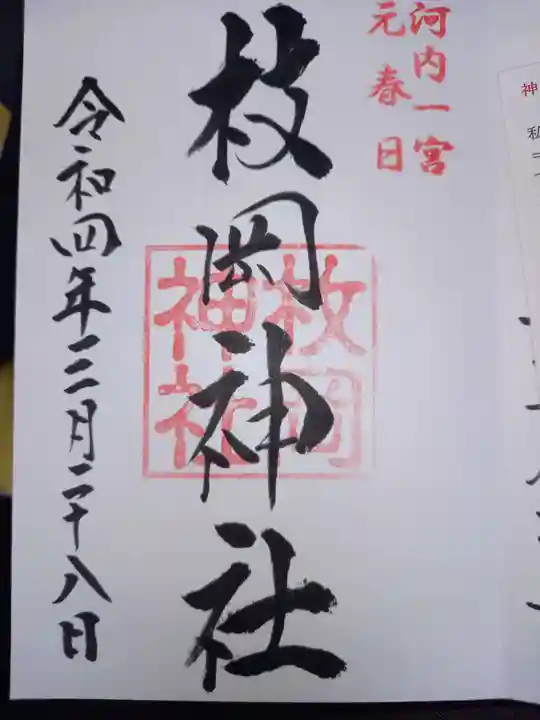 河内一宮
元春日
枚岡神社
枚岡
神社
令和四年三月二十八日
神